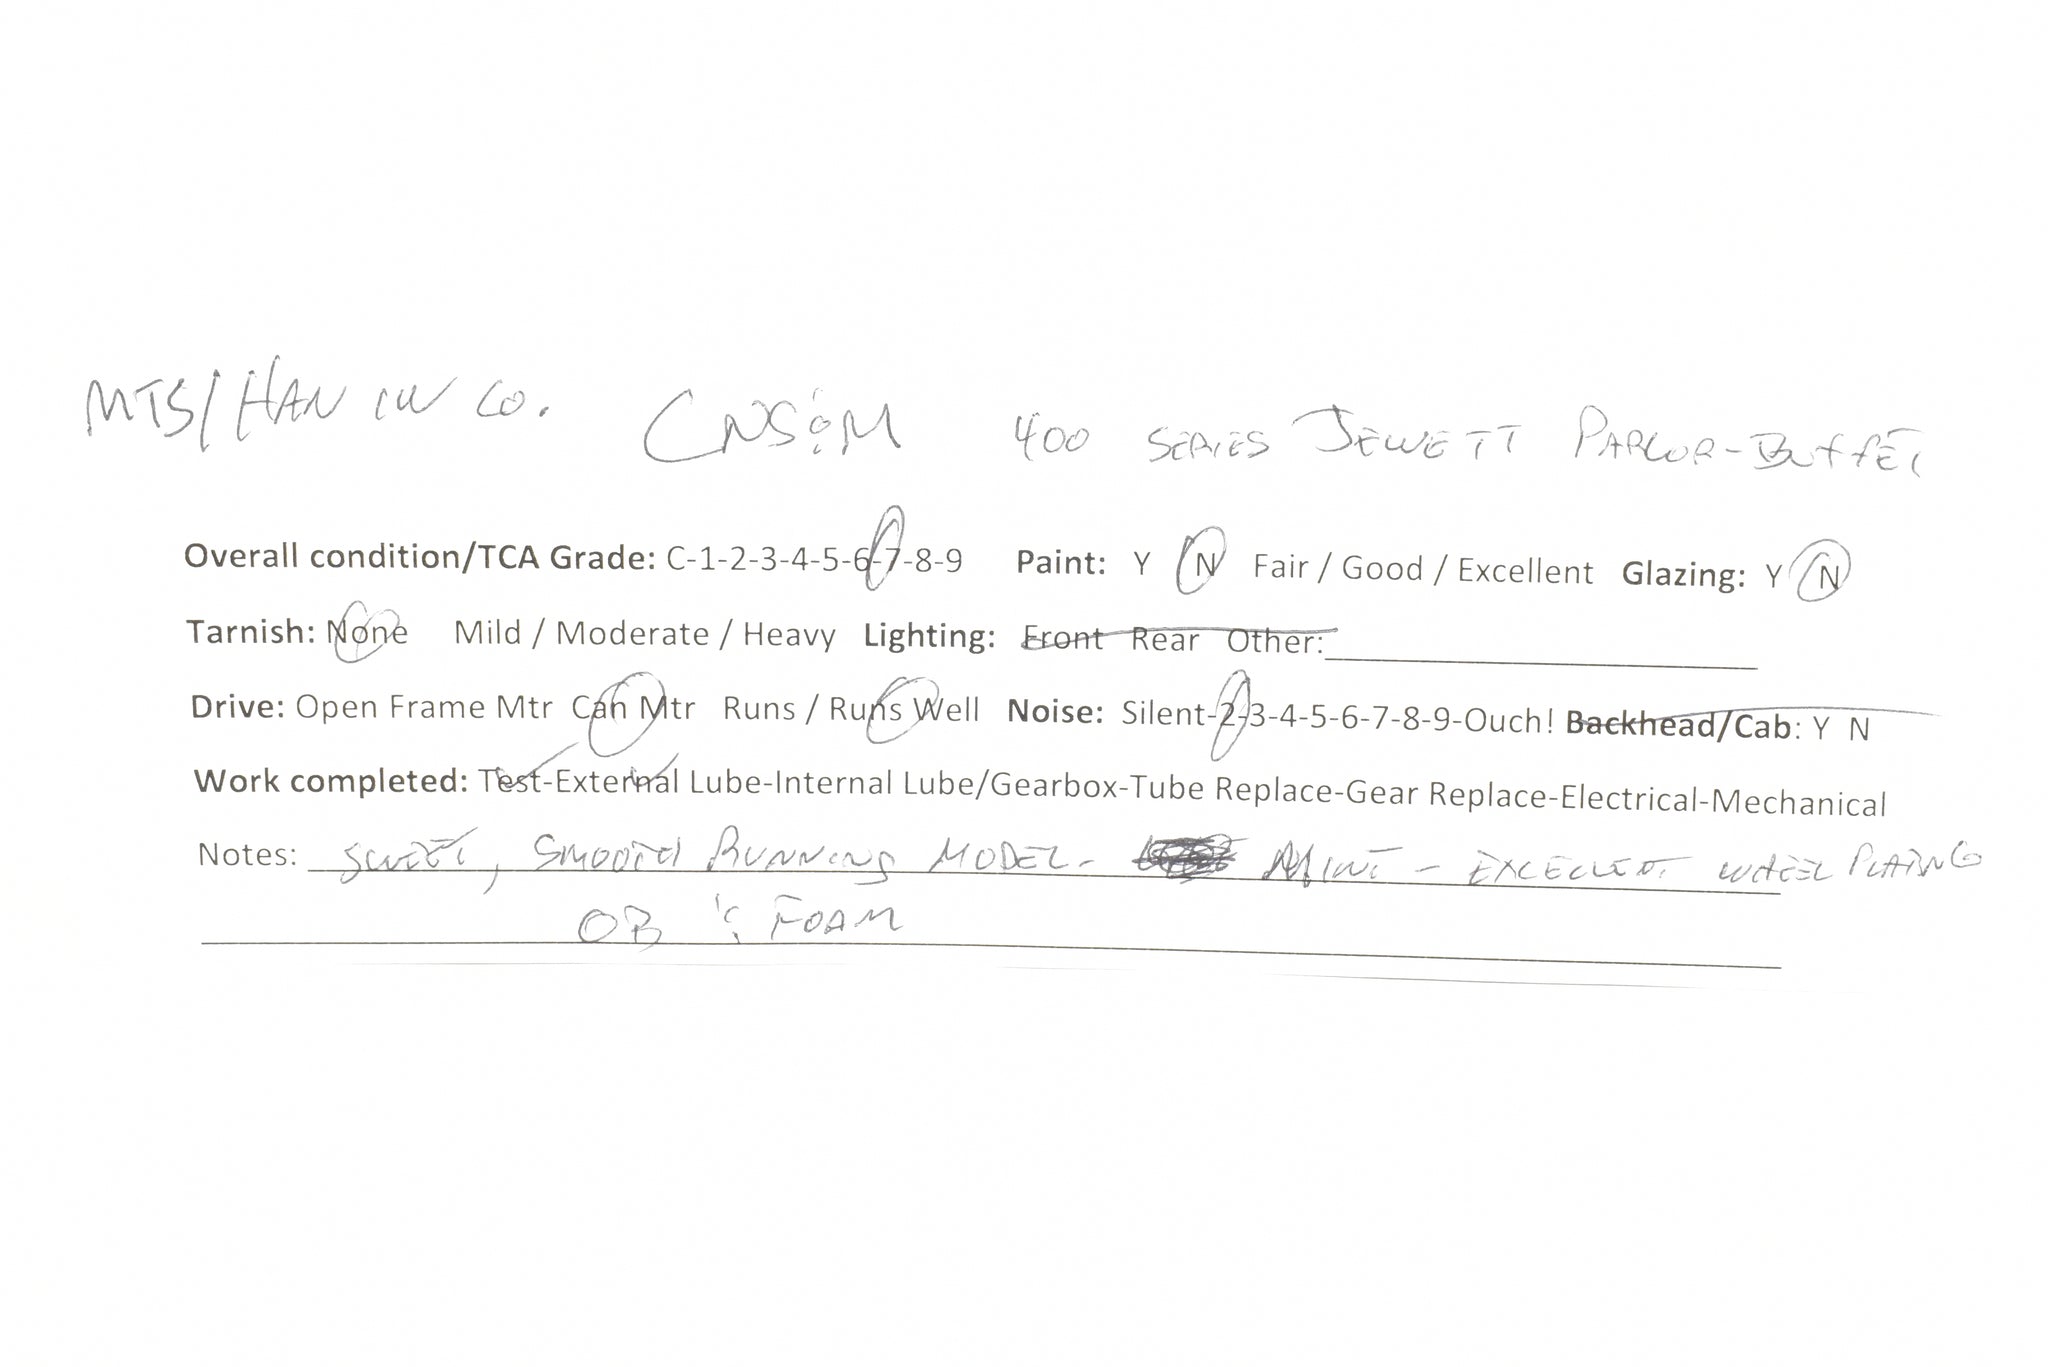 MTS/HAN IW CO. CNS&M 400 SERIES JEWETT PARLOR-BUFFET
Overall condition/TCA Grade: C-1-2-3-4-5-6-7-8-9 Paint: Y N Fair / Good / Excellent Glazing: Y N
Tarnish: None Mild / Moderate / Heavy Lighting: Front Rear Other:
Drive: Open Frame Mtr Can Mtr Runs / Runs Well Noise: Silent-2-3-4-5-6-7-8-9-Ouch! Backhead/Cab: Y N
Work completed: Test-External Lube-Internal Lube/Gearbox-Tube Replace-Gear Replace-Electrical-Mechanical
Notes: SWEET, SMOOTH RUNNING MODEL- MINT - EXCELLENT WHEEL PLATING
OB & FOAM